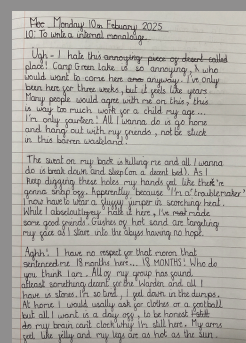 Moc Monday 10th Febuary 2025
10: To write a internal monologe.
Ugh - I hate this annoying piece of desert called
place! Camp Green Lake is so annoying, & who
would want to come here anyway. I've only
been here for three weeks, but it feels like years.
Many people would agree with me on this, this
is way too much work for a child my age...
I'm only fourteen! All I wanna do is go home
and hang out with my friends, not be stuck
in this barren wasteland!
The sweat on my back is killing me and all I wanna
do is break down and sleep (on a decent bed). As I
keep digging these holes my hands feel like they're
gonna snap off. Apparently because "I'm a troublemaker"
I now have to wear a jumper in scorching heat.
While I absolutely hate it here, I've made
some good friends. Gushes of hot sand are targeting
my face as I stare into the abyss having no hope.
Aghh! I have no respect for that moron that
sentenced me 18 months here... 18 MONTHS! Who do
you think I am? All of my group has found
atleast something decent for the Warden and all I
have is stones. I'm so tired, I got down in the dumps.
At home I would usually ask for clothes or a football
but all I want is a day off, to be honest
do my brain can't clock why I'm still here. My arms
feel like jelly and my legs are as hot as the sun.